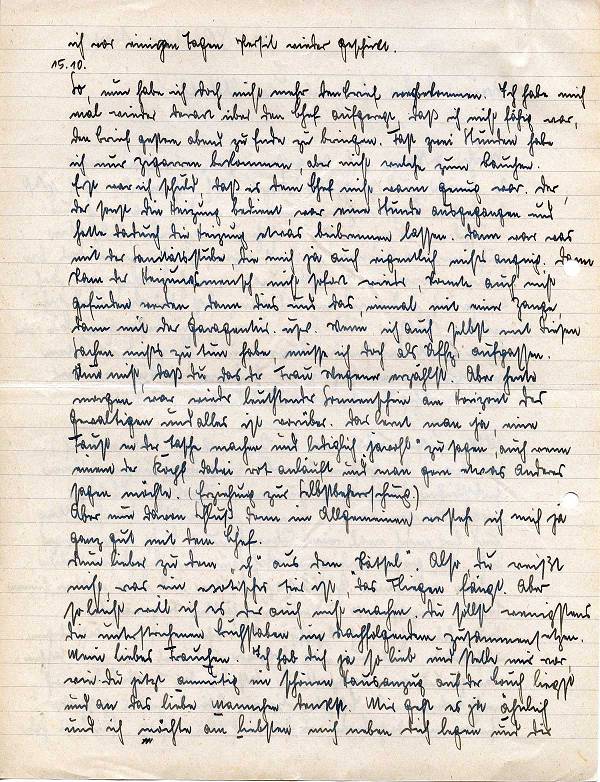 ich vor einigen Tagen Persil wieder geschickt.
15.10.
So nun habe ich doch nicht mehr den Brief wegbekommen. Ich habe mich
mal wieder derart über den Chef aufgeregt, daß ich nicht fähig war,
den Brief gestern abend zu Ende zu bringen. Fast zwei Stunden habe
ich nur Zigarren bekommen, aber nicht welche zum Rauchen.
Erst war ich schuld, daß es dem Chef nicht warm genug war. Der,
der sonst die Heizung bedient, war eine Stunde ausgegangen und
hatte dadurch die Heizung etwas runterbrennen lassen. Dann war was
mit der Sanitätsstube, die mich ja auch eigentlich nichts anging. Dann
kam der Heizungsmensch nicht sofort wieder, konnte auch nicht
gefunden werden, dann dies und das, einmal mit einer Zange,
dann mit der Garagentür usw. Wenn ich auch selbst mit diesen
Sachen nichts zu tun habe, müsse ich doch als Uffz. aufpassen.
Nur nicht, daß du das der Frau Wegener erzählst. Aber heute
morgen war wieder leuchtender Sonnenschein am Horizont des
Gewaltigen und alles ist vorüber. Das lernt man ja, eine
Faust in der Tasche machen und lediglich „jawohl" zu sagen, auch wenn
einem der Kopf dabei rot anläuft und man gern etwas anderes
sagen möchte. (Erziehung zur Selbstbeherrschung.)
Aber nun davon Schluß denn im Allgemeinen verstehe ich mich ja
ganz gut mit dem Chef.
Nun lieber zu dem „ch" aus dem Rätsel". Also, du weißt
nicht, was ein exotisches Tier ist, das Fliegen fängt. Aber
so leicht will ich es dir auch nicht machen. Du sollst wenigstens
die unterstrichenen Buchstaben im Nachfolgenden zusammensetzen.
Mein liebes Frauchen. Ich hab dich ja so lieb und stelle mir vor
wie du jetzt anmutig im schönen Hausanzug auf der Couch liegst
und an das liebe Mannchen denkst. Mir geht es ja ähnlich
und ich möchte am liebsten mich neben dich legen und die